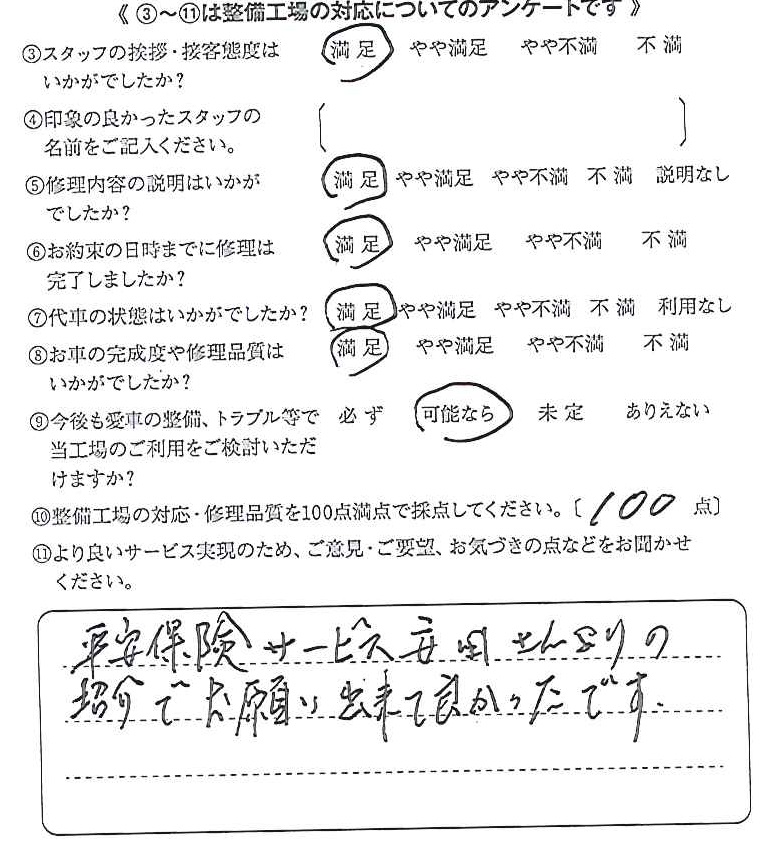 《 ③〜⑪は整備工場の対応についてのアンケートです 》
③スタッフの挨拶・接客態度は 満 足 やや満足 やや不満 不 満
いかがでしたか?
④印象の良かったスタッフの
名前をご記入ください。
⑤修理内容の説明はいかが 満 足 やや満足 やや不満 不 満 説明なし
でしたか?
⑥お約束の日時までに修理は 満 足 やや満足 やや不満 不 満
完了しましたか?
⑦代車の状態はいかがでしたか? 満 足 やや満足 やや不満 不 満 利用なし
⑧お車の完成度や修理品質は 満 足 やや満足 やや不満 不 満
いかがでしたか?
⑨今後も愛車の整備、トラブル等で 必 ず 可能なら 未 定 ありえない
当工場のご利用をご検討いただ
けますか?
⑩整備工場の対応・修理品質を100点満点で採点してください。〔 100 点〕
⑪より良いサービス実現のため、ご意見・ご要望、お気づきの点などをお聞かせ
ください。
平安保険サービス さんよりの
紹介でお願い出来て良かったです.